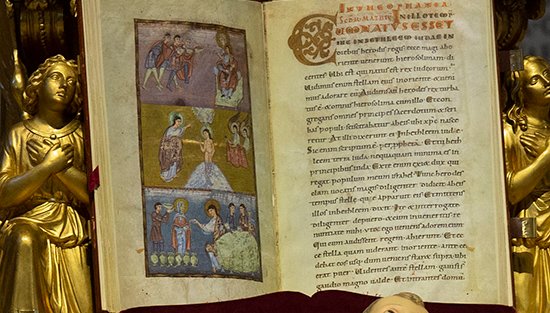 IN THEOPHANIA
IN ILLO
NATUS ESSET
IN BETHLEEM IUDAE IN
diebus herodis regis ecce magi abo
riente uenerunt hierosolimam di
centes Ubi est qui natus est rex iudeorum
Uidimus enim stellam eius inoriente & ueni
mus adorare eum Audiens herodes rex turba
tus e & omnis hierosolima cum illo Et con
gregans omnes principes sacerdotum & scri
bas populi sciscitabatur ab eis ubi xps nasce
dixerunt ei Inbethleem iudae
Sic enim scriptum e per pphetam Et tu beth
leem terra iuda nequaquam minima es in
Ex te enim exiet dux qui
regat populum meum Tunc herodes
clam uocatis magis diligenter didicit ab eis
tempus stellae que apparuit eis Et mittens
illos inbethleem dixit Ite & interrogate
diligenter depuero & cum inueneritis re
mihi ut & ego ueniens adorem eum
Qui cum audissent regem abierunt Et ecce
stella quam uiderant inoriente ante ce
debat eos usq; dum ueniens staret supra ubi
erat puer Uidentes autem stellam gauisi
gaudio magno ualde